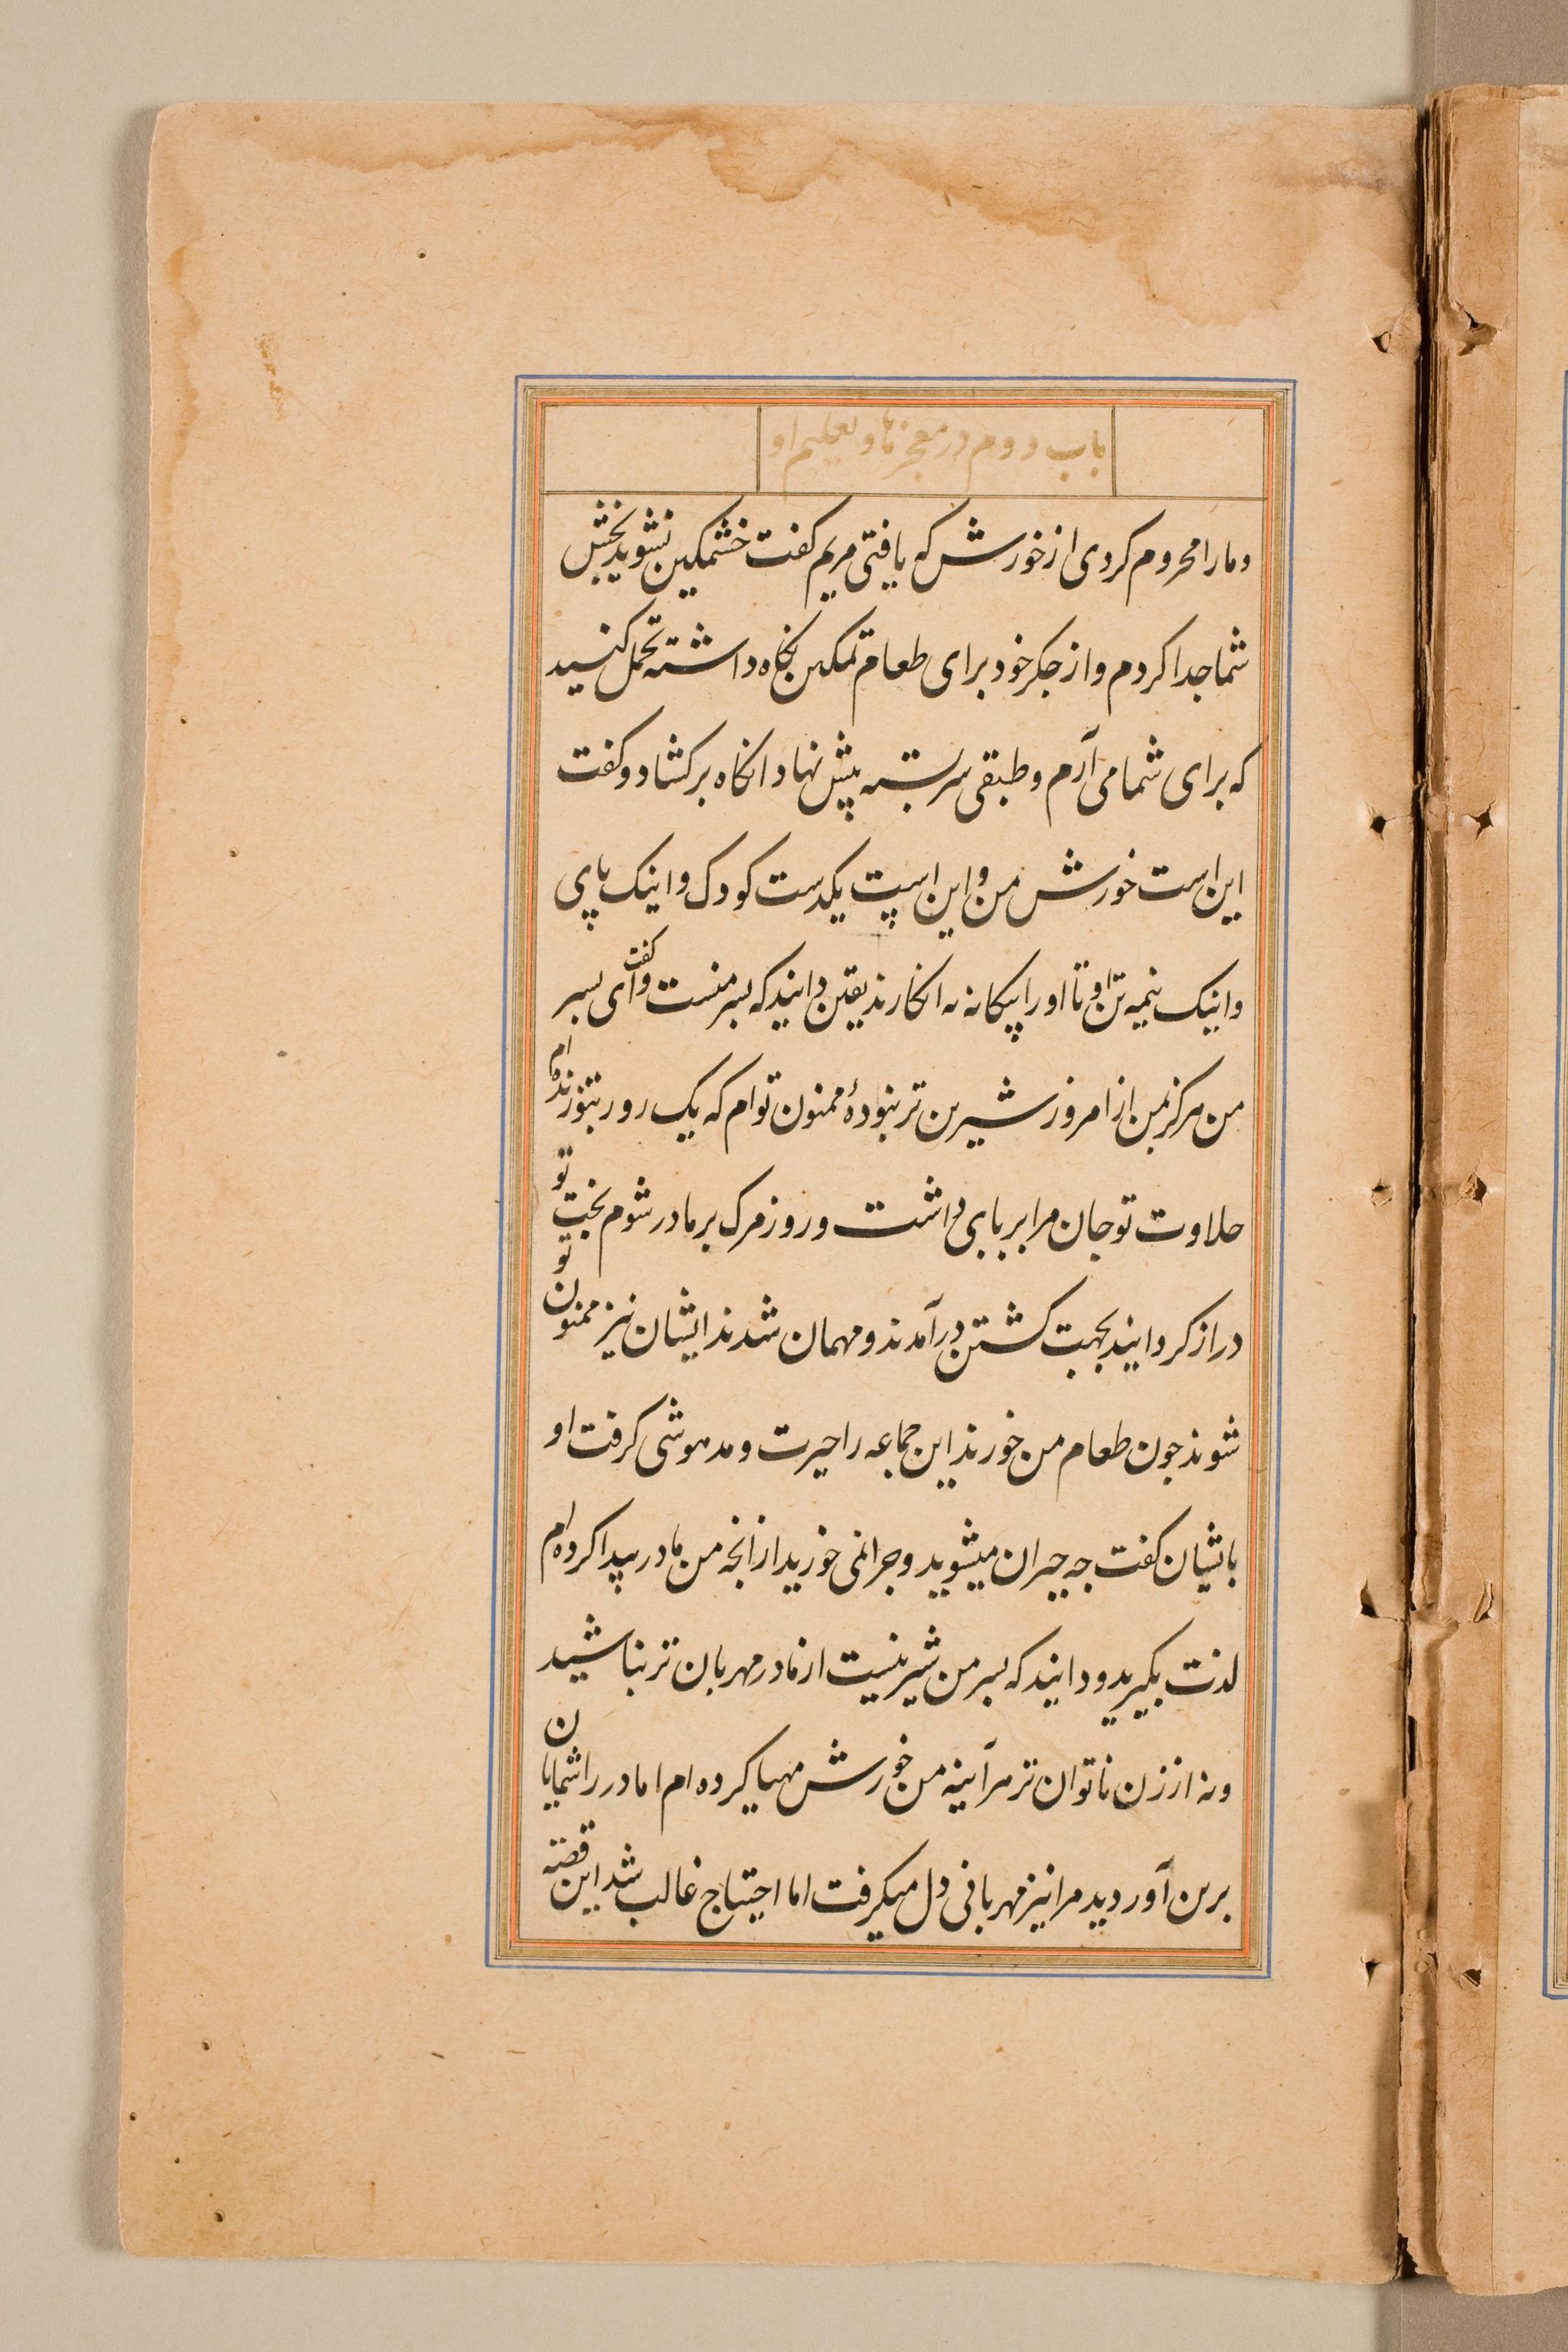 باب دوم در معجزها و تعلیم او
و ما را محروم کردی از خورش که یافتی مریم کفت خشمکین نشوید بخش
شما جدا کردم و از جکر خود برای طعام تمکین نکاه داشته تحمل کنید
که برای شما می آرم و طبقی سربسته پیش نهاد انکاه برکشاد و کفت
این است خورش من و این است یکدست کودک و اینک پای
و اینک نیمه تن او تا او را بیکانه نه انکارند یقین دانید که پسر منست و کفت ای پسر
من هرکز بمن از امروز شیرین تر نبودهٔ ممنون توام که یک روز بتو زنده ام
حلاوت تو جان مرا بر پای داشت و روز مرک بر مادر شوم بخت تو
دراز کردانید بجهت کشتن درآمدند و مهمان شدند ایشان نیز ممنون تو
شوند جون طعام من خورند این جماعه را حیرت و مدهوشی کرفت او
بایشان کفت جه حیران میشوید و جرا نمی خورید از انجه من مادر پیدا کرده ام
لذت بکیرید و دانید که پسر من شیرینست از مادر مهربان تر نباشید
و نه از زن ناتوان تر هر آینه من خورش مهیا کرده ام اما در را شمایان
برمن آوردید مرا نیز مهربانی دل میکرفت اما احتیاج غالب شد این قصه